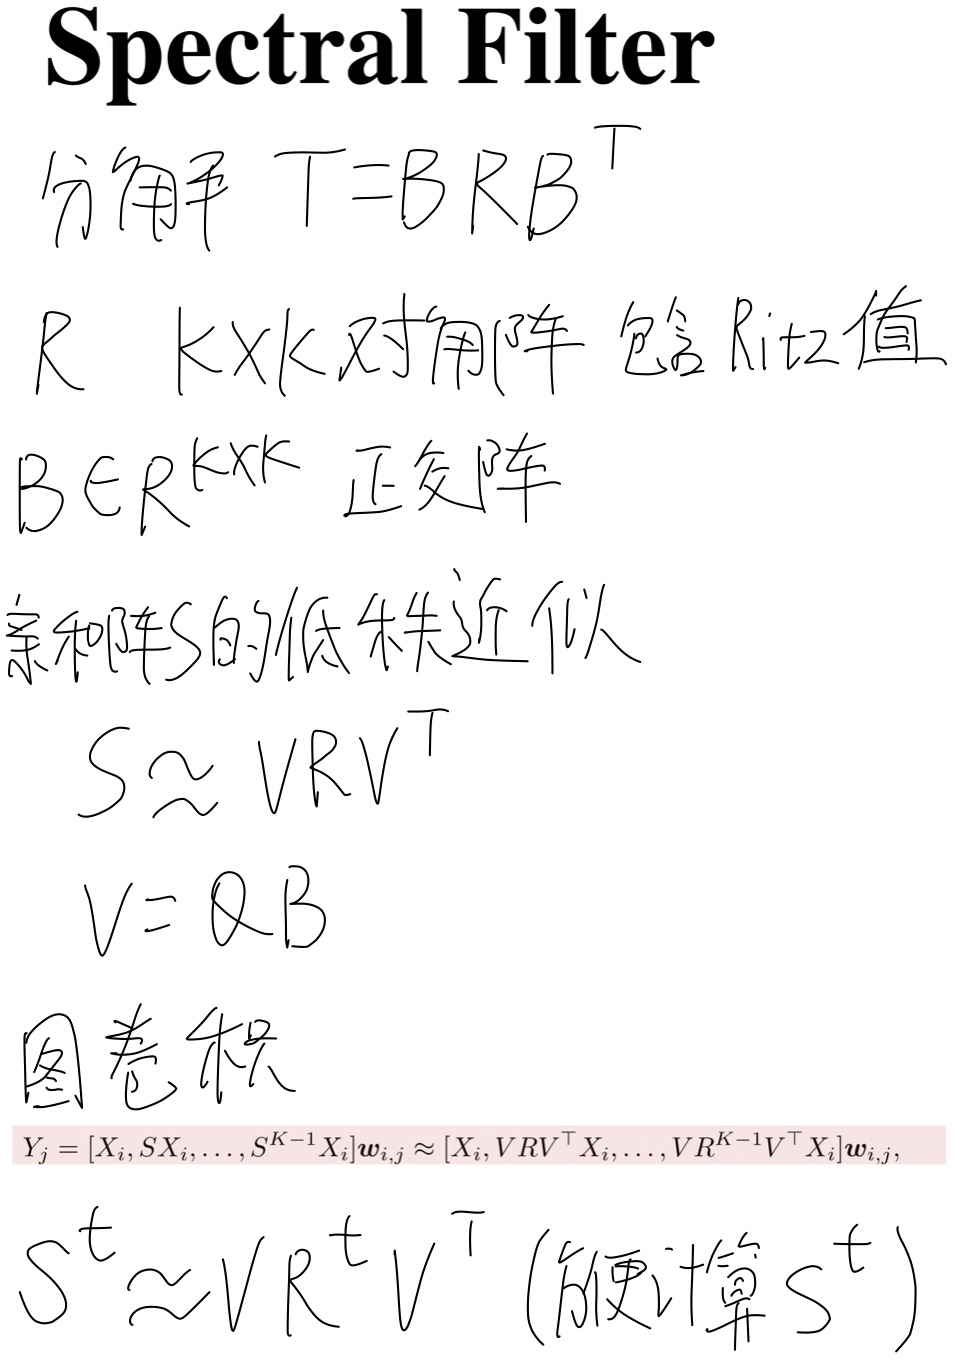 Spectral Filter
分解 T=BRB^T
R K×K对角阵 包含Ritz值
B∈R^{K×K} 正交阵
亲和阵S的低秩近似
S≈VRV^T
V=QB
图卷积
Y_j = [X_i, SX_i, . . . , S^{K−1}X_i]w_{i,j} ≈ [X_i, VRV^⊤X_i, . . . , VR^{K−1}V^⊤X_i]w_{i,j},
S^t≈VR^tV^T (方便计算S^t)